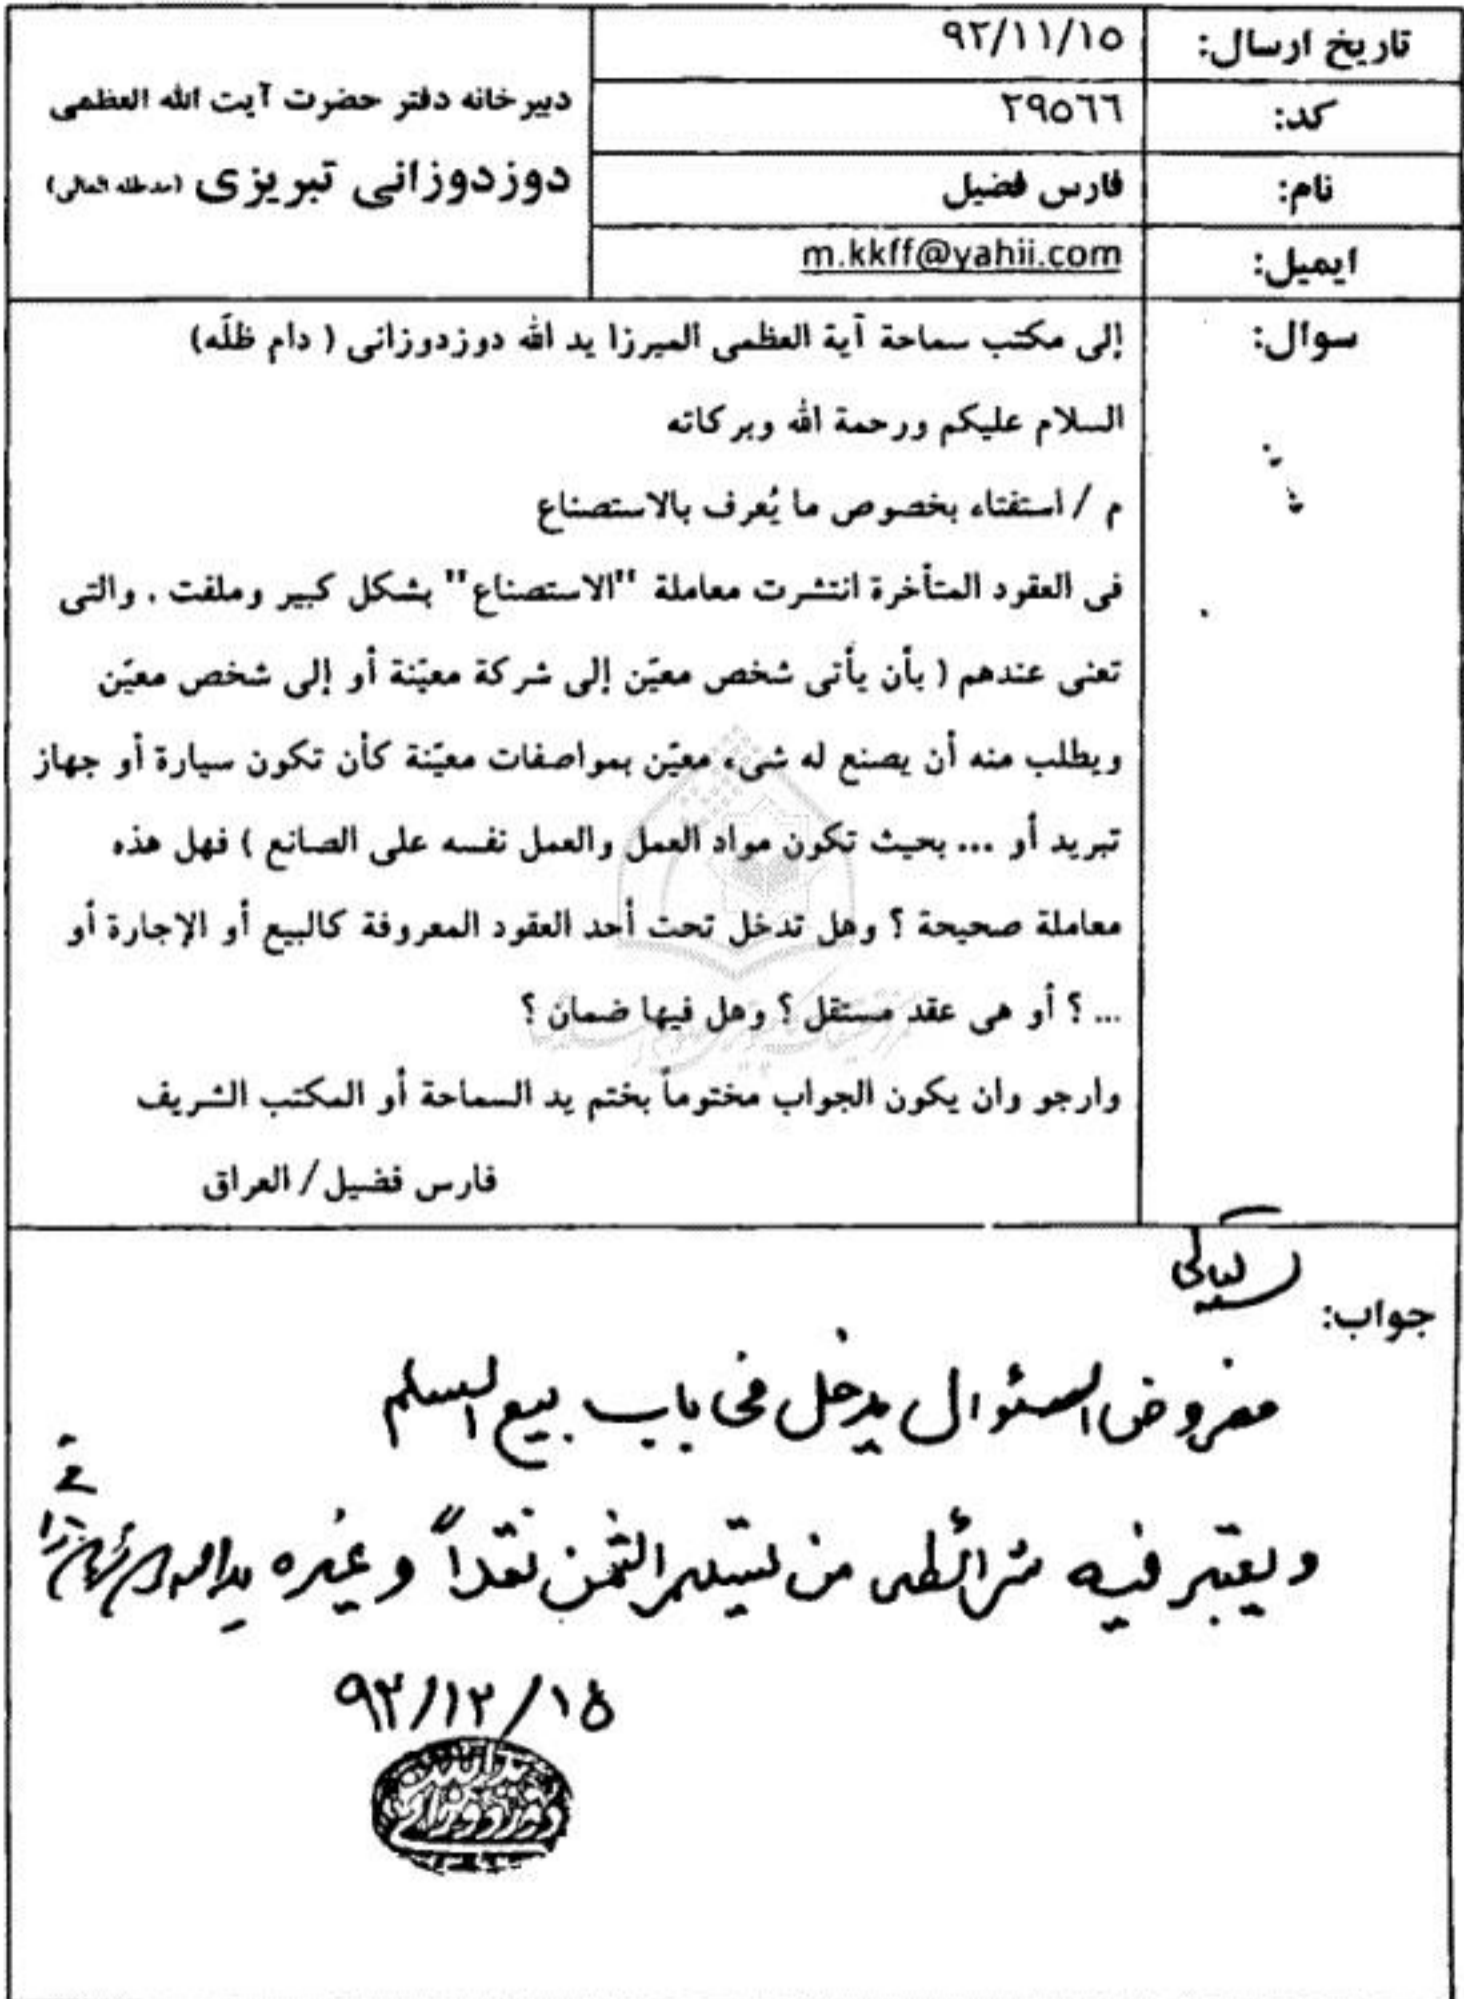 تاریخ ارسال: ٩٢/١١/١٥
کد: ٢٩٥٦٦
نام: فارس فضیل
ایمیل: m.kkff@yahii.com
دبیرخانه دفتر حضرت آیت الله العظمی
دوزدوزانی تبریزی (مدظله العالی)
سوال:
إلى مكتب سماحة آية العظمى الميرزا يد الله دوزدوزانى ( دام ظلّه)
السلام عليكم ورحمة الله وبركاته
م / استفتاء بخصوص ما يُعرف بالاستصناع
فى العقود المتأخرة انتشرت معاملة "الاستصناع" بشكل كبير وملفت . والتى
تعنى عندهم ( بأن يأتى شخص معيّن إلى شركة معيّنة أو إلى شخص معيّن
ويطلب منه أن يصنع له شىء معيّن بمواصفات معيّنة كأن تكون سيارة أو جهاز
تبريد أو ... بحيث تكون مواد العمل والعمل نفسه على الصانع ) فهل هذه
معاملة صحيحة ؟ وهل تدخل تحت أحد العقود المعروفة كالبيع أو الإجارة أو
... ؟ أو هى عقد مستقل ؟ وهل فيها ضمان ؟
وارجو وان يكون الجواب مختوماً بختم يد السماحة أو المكتب الشريف
فارس فضيل / العراق
جواب:
مفروض السئوال يدخل فى باب بيع السلم
ويعتبر فيه شرائطه من تسليم الثمن نقداً وغيره
٩٢/١٢/١٥
يدالله
دوزدوزانی